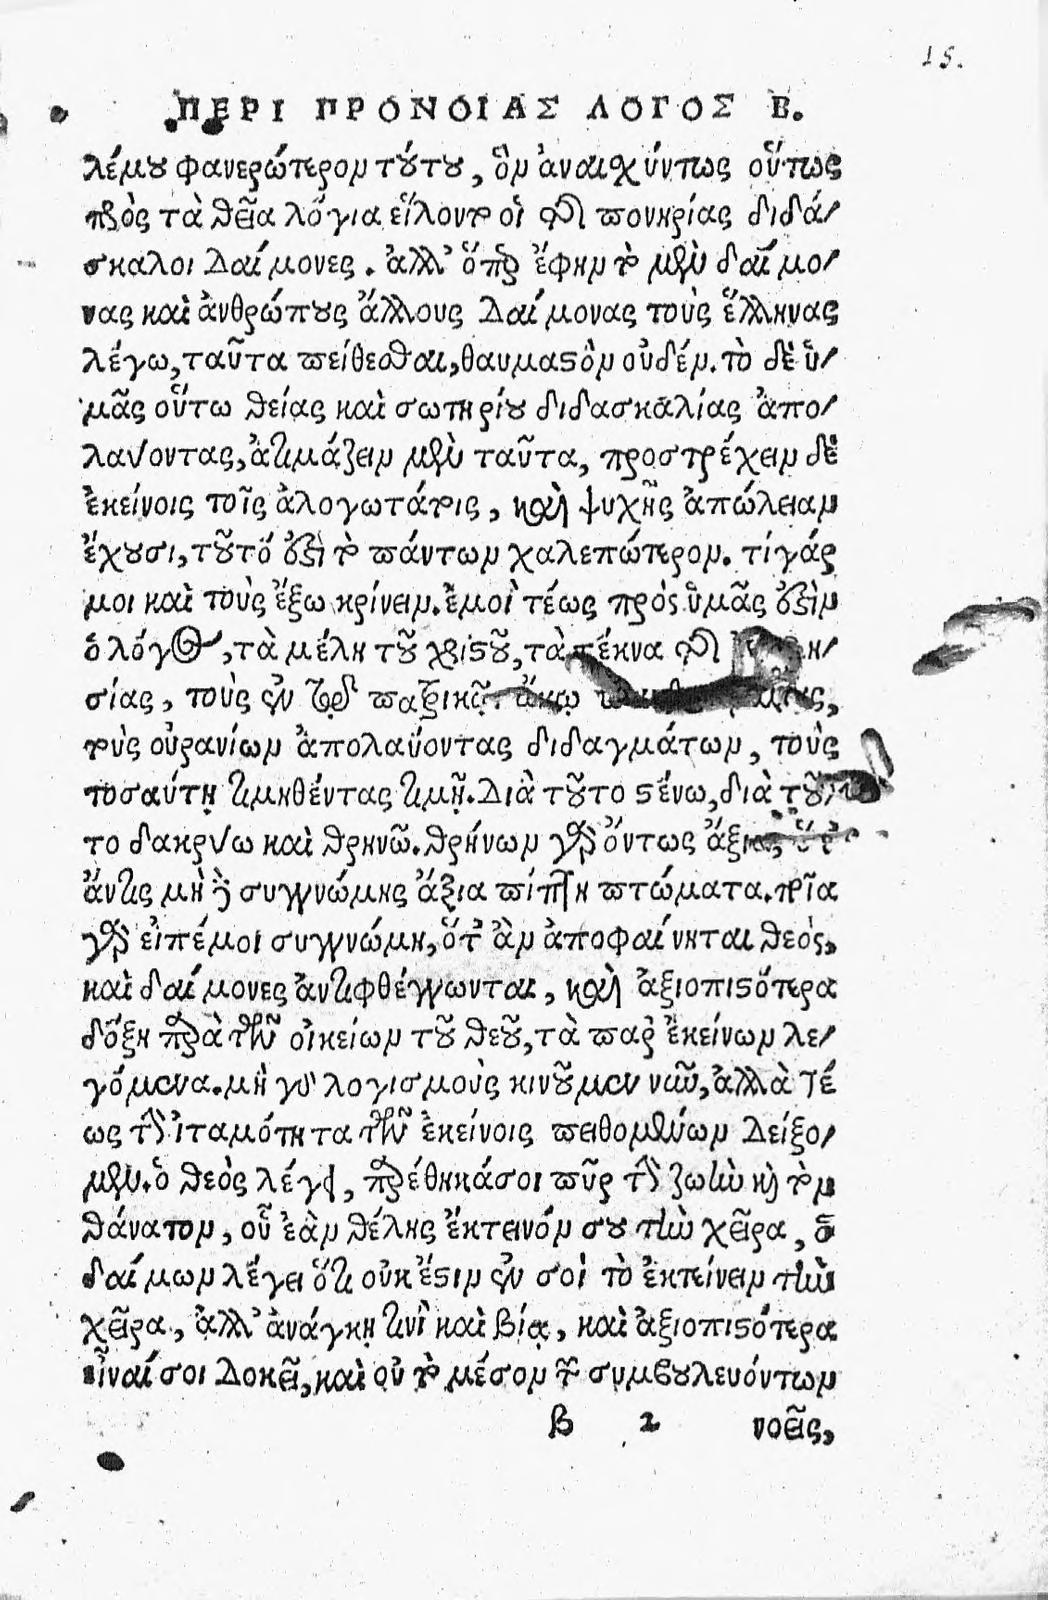 15.
ΠΕΡΙ ΠΡΟΝΟΙΑΣ ΛΟΓΟΣ Β.
λέμου φανερώτερον τούτου, ὃν ἀναισχύντως οὕτως
πρὸς τὰ θεῖα λόγια εἵλοντο οἱ τῆς πονηρίας διδά/
σκαλοι Δαίμονες. ἀλλ' ὅπερ ἔφην τὸ μὲν δαίμο/
νας καὶ ἀνθρώπους ἄλλους Δαίμονας τοὺς ἕλληνας
λέγω, ταῦτα πείθεσθαι, θαυμαστὸν οὐδέν. τὸ δὲ ὑ/
μᾶς οὕτω θείας καὶ σωτηρίου διδασκαλίας ἀπο/
λαύοντας, ἀτιμάζειν μὲν ταῦτα, προστρέχειν δὲ
ἐκείνοις τοῖς ἀλογωτάτοις, καὶ ψυχῆς ἀπώλειαν
ἔχουσι, τοῦτό ἐστὶ τὸ πάντων χαλεπώτερον. τί γάρ
μοι καὶ τοὺς ἔξω κρίνειν. ἐμοὶ τέως πρὸς ὑμᾶς ἐστὶν
ὁ λόγος, τὰ μέλη τοῦ χριστοῦ, τὰ τέκνα τῆς
σίας, τοὺς ἐν τῷ
τοὺς οὐρανίων ἀπολαύοντας διδαγμάτων, τοὺς
τοσαύτῃ τιμηθέντας τιμῇ. Διὰ τοῦτο στένω, διὰ τοῦ/
το δακρύω καὶ θρηνῶ. θρήνων γὰρ ὄντως
ἄντις μὴ ᾖ συγγνώμης ἄξια πίπτῃ πτώματα. ποῖα
γὰρ εἰπέμοι συγγνώμη, ὅτ' ἂν ἀποφαίνηται θεός,
καὶ δαίμονες ἀντιφθέγγωνται, καὶ ἀξιοπιστότερα
δόξῃ παρὰ τῶν οἰκείων τοῦ θεοῦ, τὰ παρ' ἐκείνων λε/
γόμενα. μὴ γὰρ λογισμοὺς κινοῦμεν νῦν, ἀλλὰ τέ
ως τὴν ἰταμότητα τῶν ἐκείνοις πειθομένων Δείξο/
μεν. ὁ θεὸς λέγει, παρέθηκάσοι πῦρ τὴν ζωὴν καὶ τὸν
θάνατον, οὗ ἐὰν θέλῃς ἔκτεινόν σου τὴν χεῖρα, ὁ
δαίμων λέγει ὅτι οὐκ ἔστιν ἐν σοὶ τὸ ἐκτείνειν τὴν
χεῖρα, ἀλλ' ἀνάγκῃ τινὶ καὶ βίᾳ, καὶ ἀξιοπιστότερα
εἶναί σοι Δοκεῖ, καὶ οὐ τὸ μέσον τῶν συμβουλευόντων
β 2 νοεῖς,